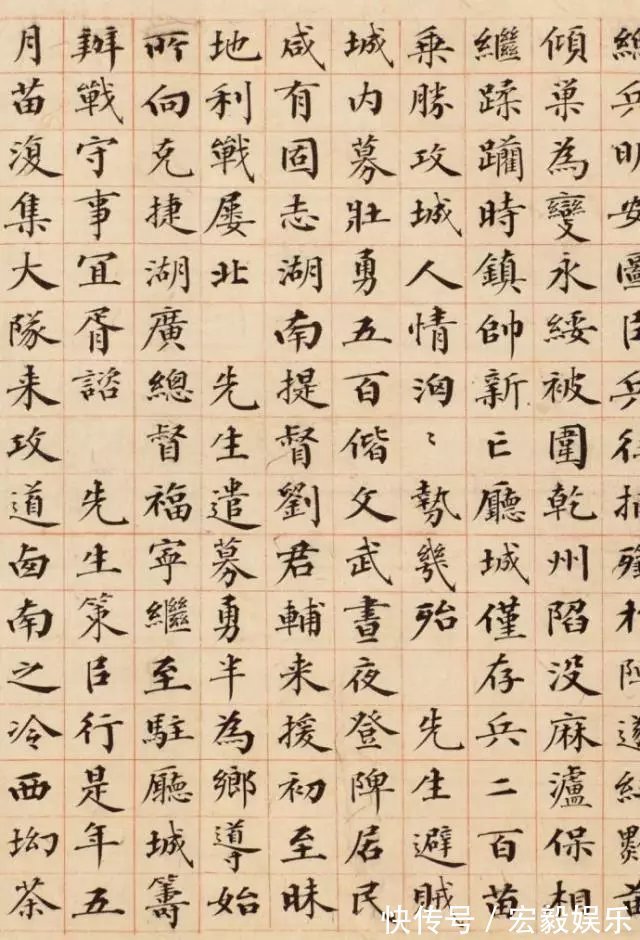 總兵明安圖
傾巢為變永綏被圍乾州陷没麻瀘保相
繼蹂躪時鎮帥新亡廳城僅存兵二百苗
乗勝攻城人情洶〻勢幾殆 先生避賊
城内募壯勇五百偕文武晝夜登陴居民
咸有固志湖南提督劉君輔来援初至昧
地利戰屢北 先生遣募勇半為鄉導始
所向克捷湖廣總督福寧繼至駐廳城籌
辦戰守事宜胥諮 先生策臣行是年五
月苗復集大隊来攻道南之冷西坳茶
快传号／宏毅娱乐